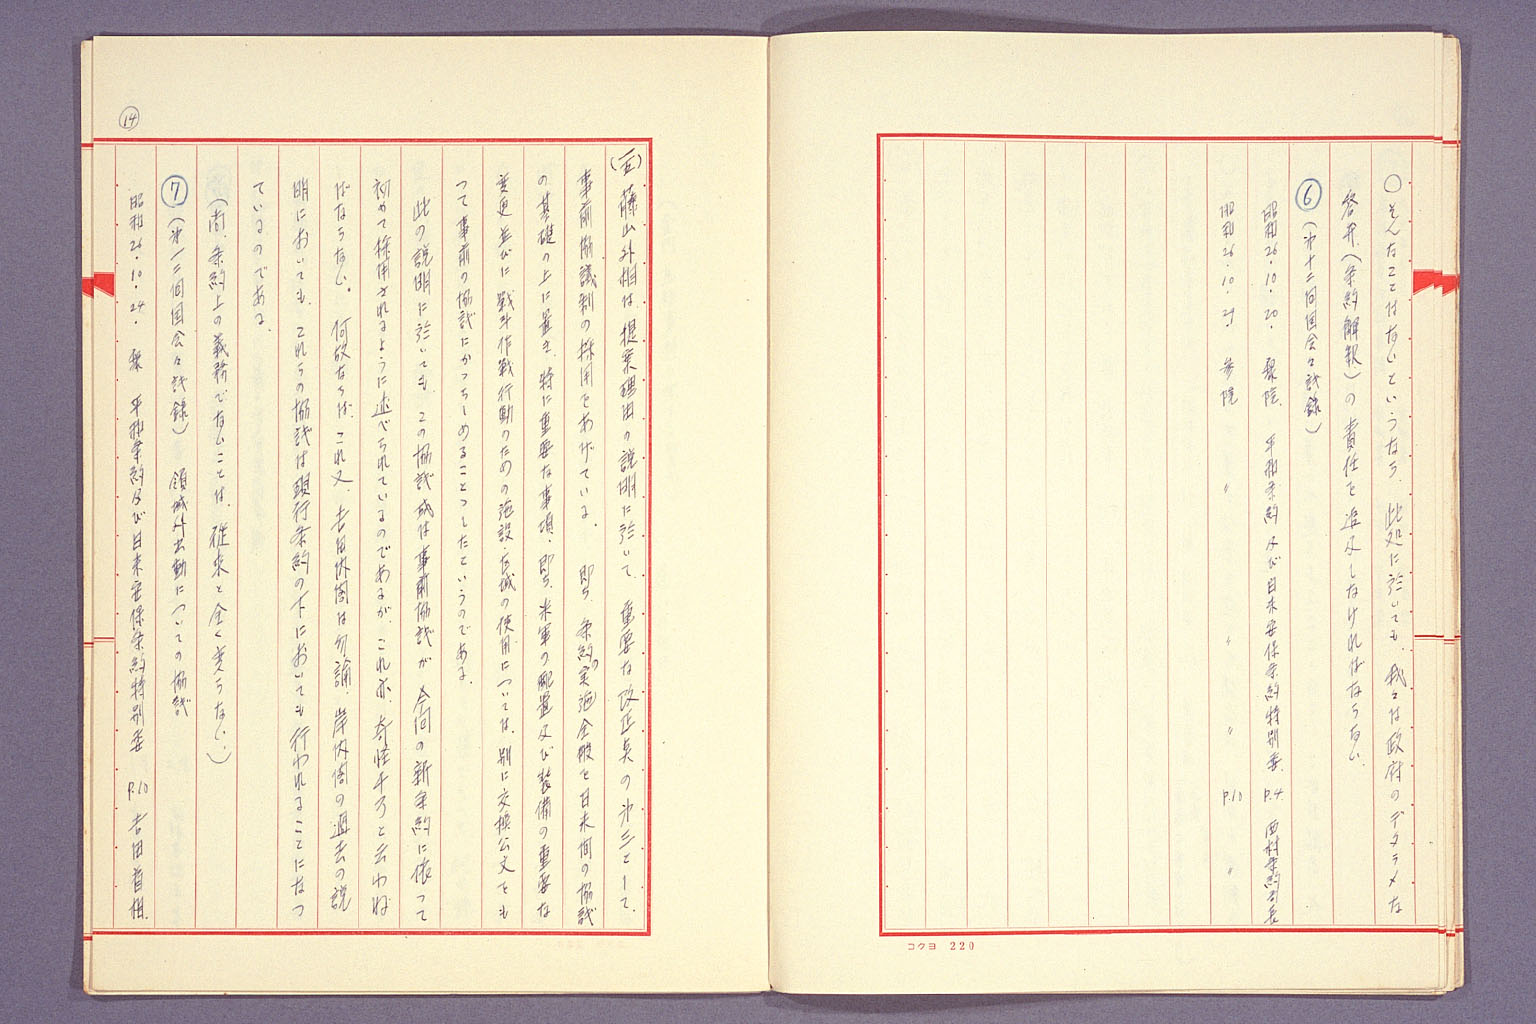 ○そんなことはないというなら、此処に於いても、我々は政府のデタラメな
答弁、(条約解釈)の責任を追及しなければならない。
⑥(第十二回国会々議録)
昭和26.10.20. 衆院. 平和条約及び日米安保条約特別委. P.4. 西村条約局長
昭和26.10.29. 参院 〃 〃 〃 P.10 〃
コクヨ 220
⑭
(五)藤山外相は提案理由の説明に於いて、重要な改正点の第三として、
事前協議制の採用をあげている。即ち、条約の実施全般を日米間の協議
の基礎の上に置き、特に重要な事項、即ち、米軍の配置及び装備の重要な
変更並びに戦斗作戦行動のための施設・区域の使用については、別に交換公文をも
つて事前の協議にかからしめることとしたというのである。
此の説明に於いても、この協議或は事前協議が今回の新条約に依って
初めて採用されるように述べられているのであるが、これ亦、奇怪千万と云わね
ばならない。何故ならば、これ又、吉田内閣は勿論、岸内閣の過去の説
明においても、これらの協議は現行条約の下においても行われることになつ
ているのである。
(尚、条約上の義務でないことは、従来と全く変らない。)
⑦(第一二回国会々議録)領域外出動についての協議
昭和26.10.24. 衆 平和条約及び日米安保条約特別委 P.10 吉田首相.